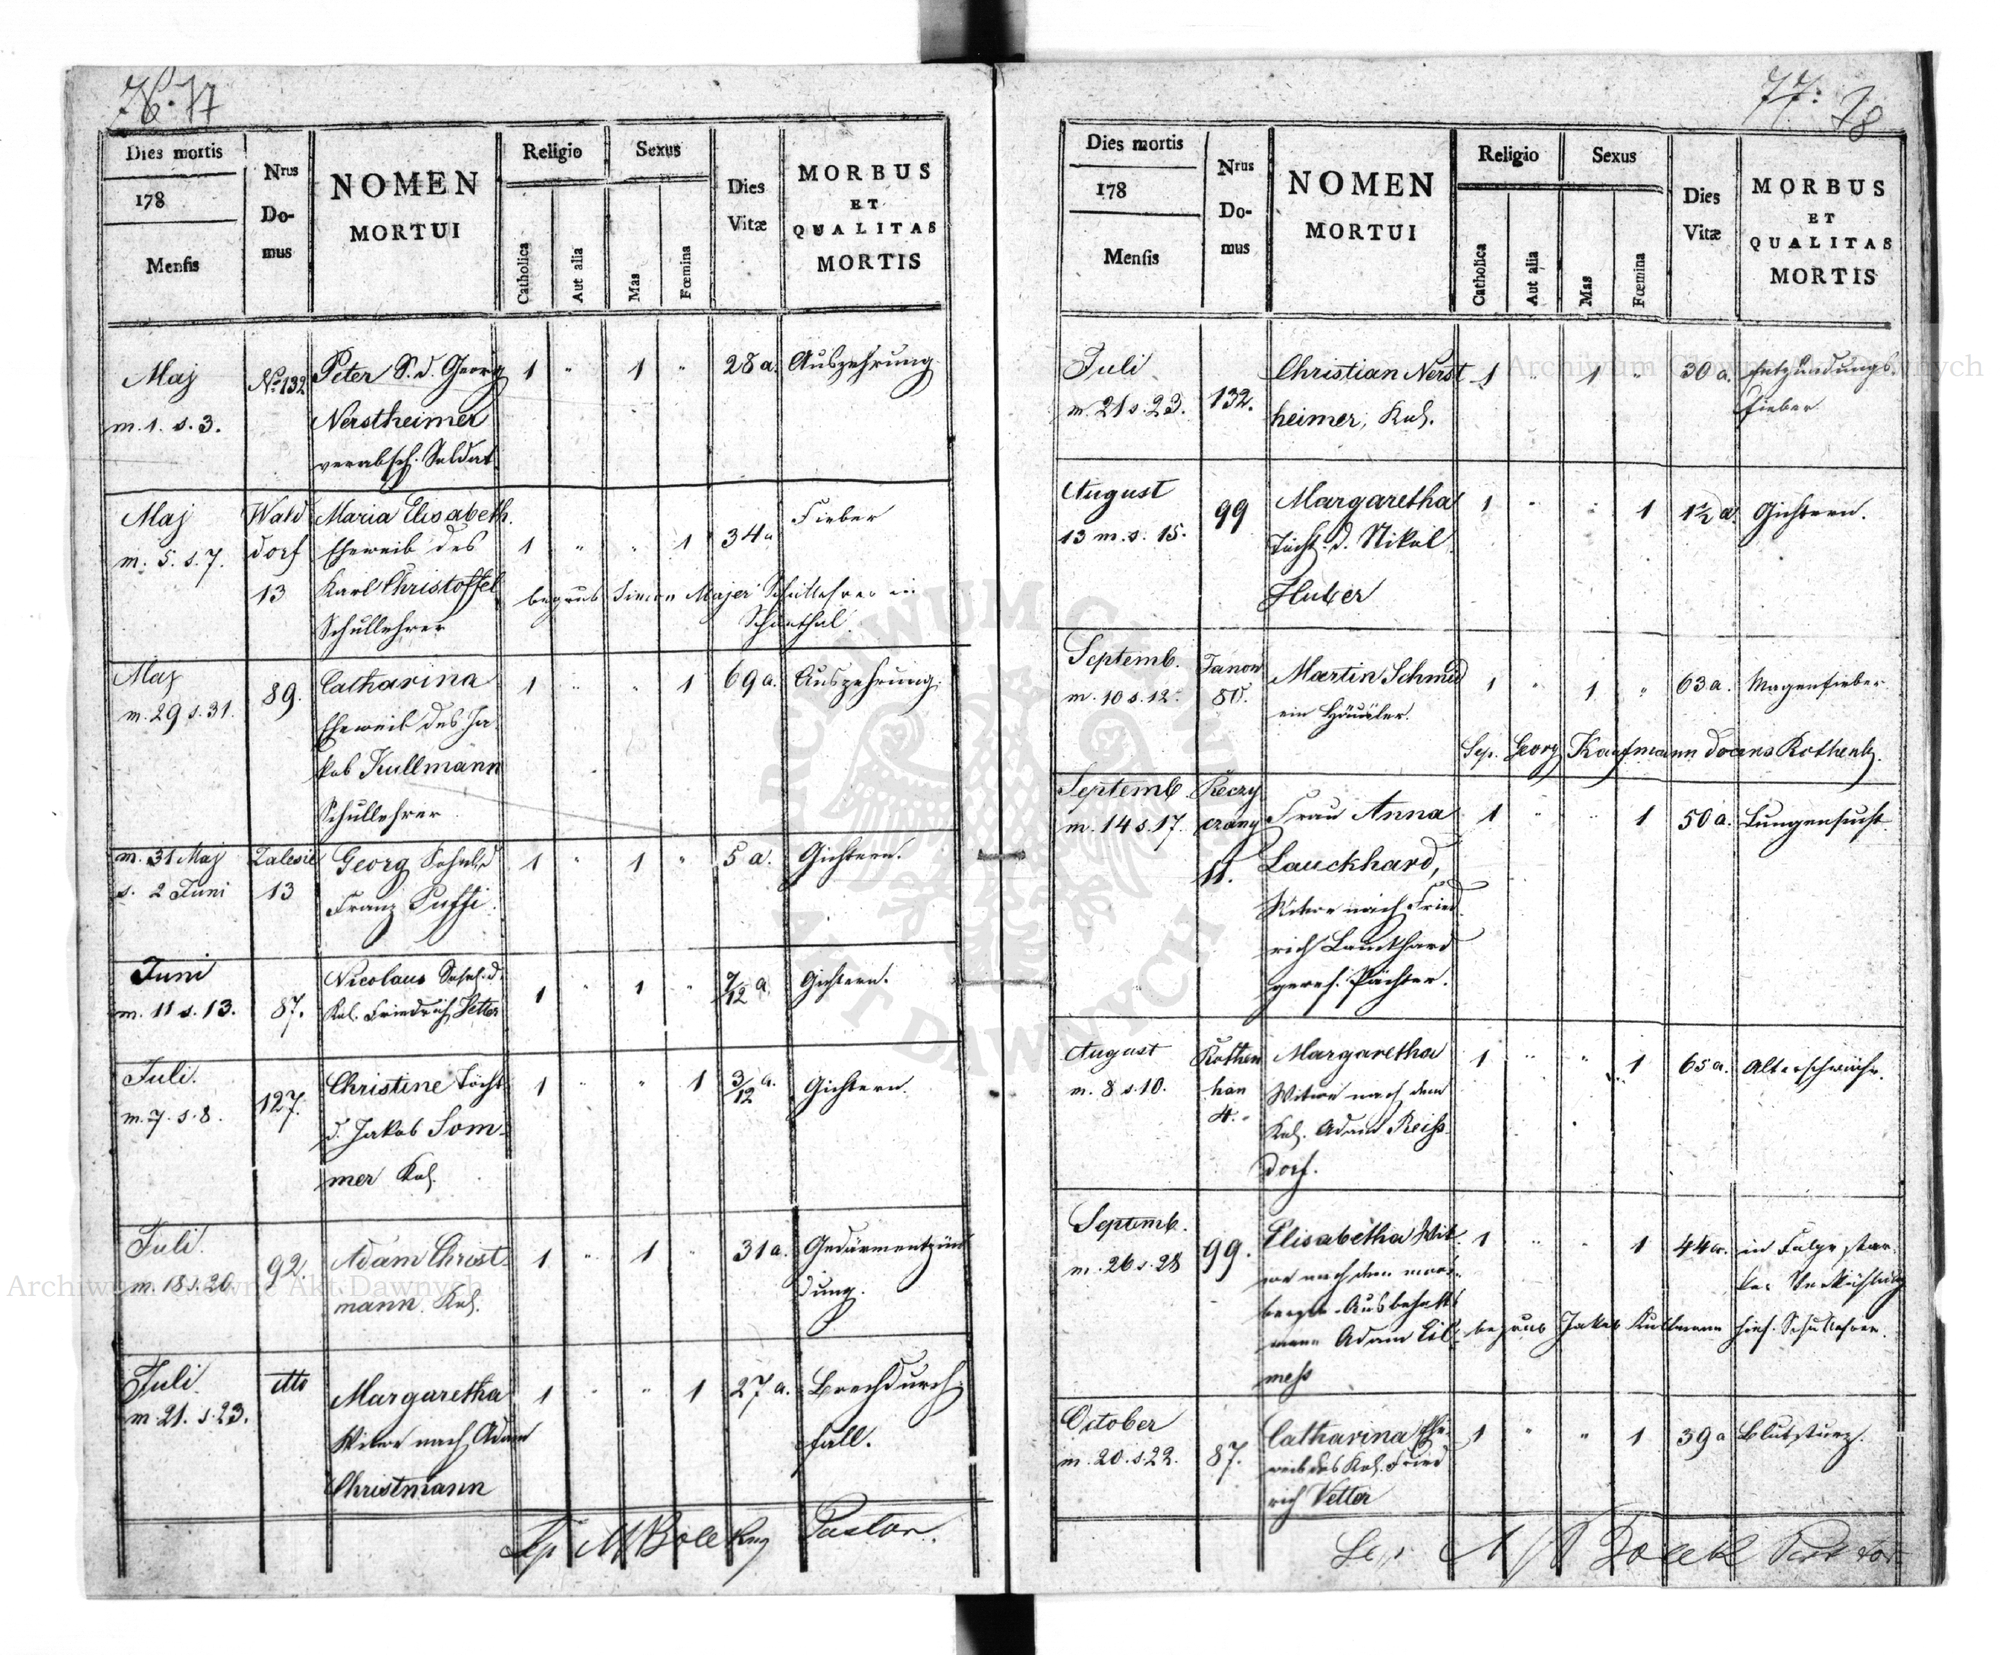 76. 77
Dies mortis
178
Mensis
Nrus
Do-
mus
NOMEN
MORTUI
Religio
Catholica
Aut alia
Sexus
Mas
Fœmina
Dies
Vitæ
MORBUS
ET
QUALITAS
MORTIS
Maj
m. 1. s. 3.
No 132
Peter S. d. Georg
Nerstheimer
verabsch. Soldat
1 " 1 "
28 a.
Auszehrung.
Maj
m. 5. s. 7.
Wald
dorf
13
Maria Elisabeth.
Eheweib des
Karl Christoffel
Schullehrer
1 " " 1
34 a
Fieber
begrub Simon Majer Schullehrer in
Schönthal
Maj
m. 29 s. 31.
89.
Catharina
Eheweib des Ja-
kob Kullmann
Schullehrer
1 " " 1
69 a.
Auszehrung.
m. 31 Maj
s. 2 Juni
Zalesie
13
Georg Sohn d
Franz
1 " 1 "
5 a.
Gichtern.
Juni
m. 11 s. 13.
87.
Nicolaus Sohn d.
Kol. Friedrich Vetter
1 " 1 "
7/12 a
Gichtern.
Juli.
m. 7. s. 8.
127.
Christine Tocht
d. Jakob Som-
mer Kol.
1 " " 1
3/12 a.
Gichtern.
Juli.
m. 18 s. 20
92.
Adam Christ-
mann. Kol.
1 " 1 "
31 a.
Gedärmentzün
dung.
Juli.
m. 21. s. 23.
dtto
Margaretha
Witwe nach Adam
Christmann
1 " " 1
27 a.
Brechdurch-
fall.
Pastor.
77. 78
Dies mortis
178
Mensis
Nrus
Do-
mus
NOMEN
MORTUI
Religio
Catholica
Aut alia
Sexus
Mas
Fœmina
Dies
Vitæ
MORBUS
ET
QUALITAS
MORTIS
Juli
m. 21 s. 23.
132.
Christian Nerst
heimer, Kol.
1 " 1 "
30 a.
Entzündungs-
fieber
August
13 m. s. 15.
99
Margaretha
Tocht. d. Nikol
Huber
1 " " 1
1½ a.
Gichtern.
Septemb.
m. 10 s. 12.
Janow
80.
Martin Schmid
ein Häusler.
1 " 1 "
63 a.
Magenfieber
Sep. Georg Kaufmann docens Rothenh.
Septemb
m. 14 s. 17.
11.
Frau Anna
Lauckhard,
Witwe nach Fried
rich Lauckhard
gewes. Pächter.
1 " " 1
50 a.
Lungensucht.
August
m. 8 s. 10.
Rothen
han
4.
Margaretha
Witwe nach dem
Kol. Adam Reiss-
dorf.
1 " " 1
65 a.
Altersschwäche.
Septemb.
m. 26 s. 28
99.
Elisabetha Wit-
we nach dem
Adam
1 " " 1
44 a.
in Folge star-
ker Verkühlung
begrub Jakob Kullmann hies. Schullehrer.
October
m. 20. s. 22.
87.
Catharina Ehe-
weib des Kol. Fried
rich Vetter
1 " " 1
39 a
Blutsturz.
Archiwum Główne Akt Dawnych
Archiwum Główne Akt Dawnych
ARCHIWUM GŁÓWNE AKT DAWNYCH